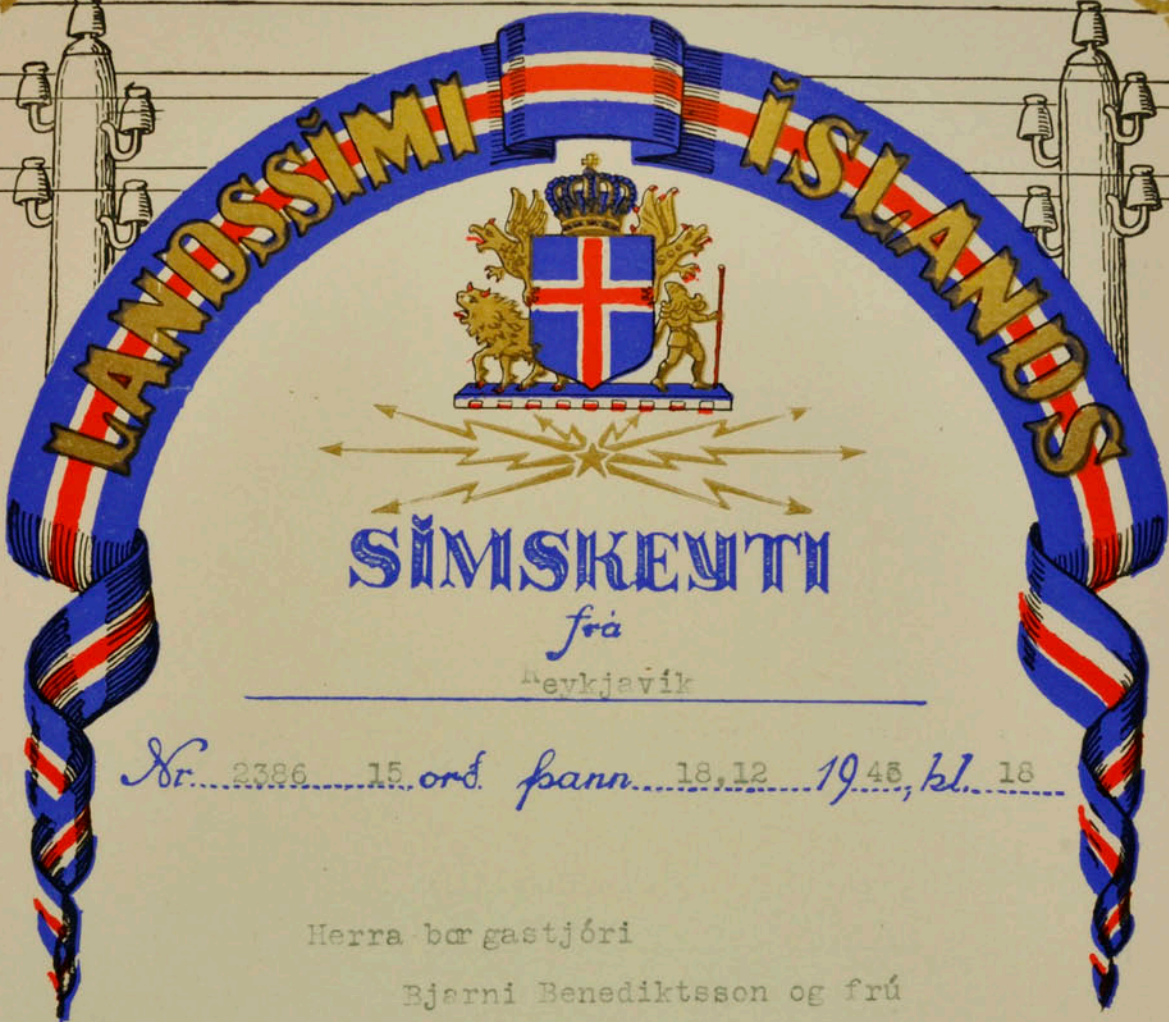 LANDSSÍMI ÍSLANDS
SÍMSKEYTI
frá
Reykjavík
Nr. 2386 15 orð. þann 18,12 1945, kl. 18
Herra borgastjóri
Bjarni Benediktsson og frú